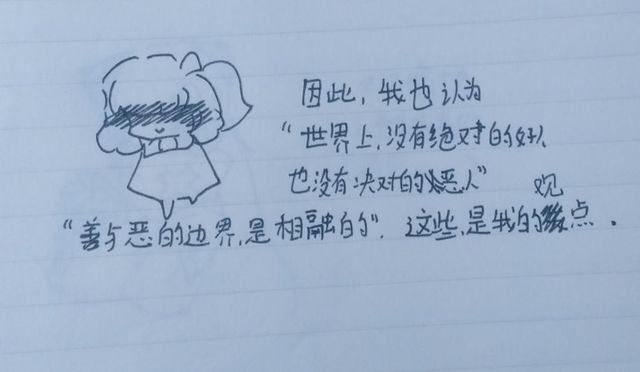 因此，我也认为
“世界上，没有绝对的好人
也没有决对的恶人”
“善与恶的边界，是相融的”，这些，是我的观点．